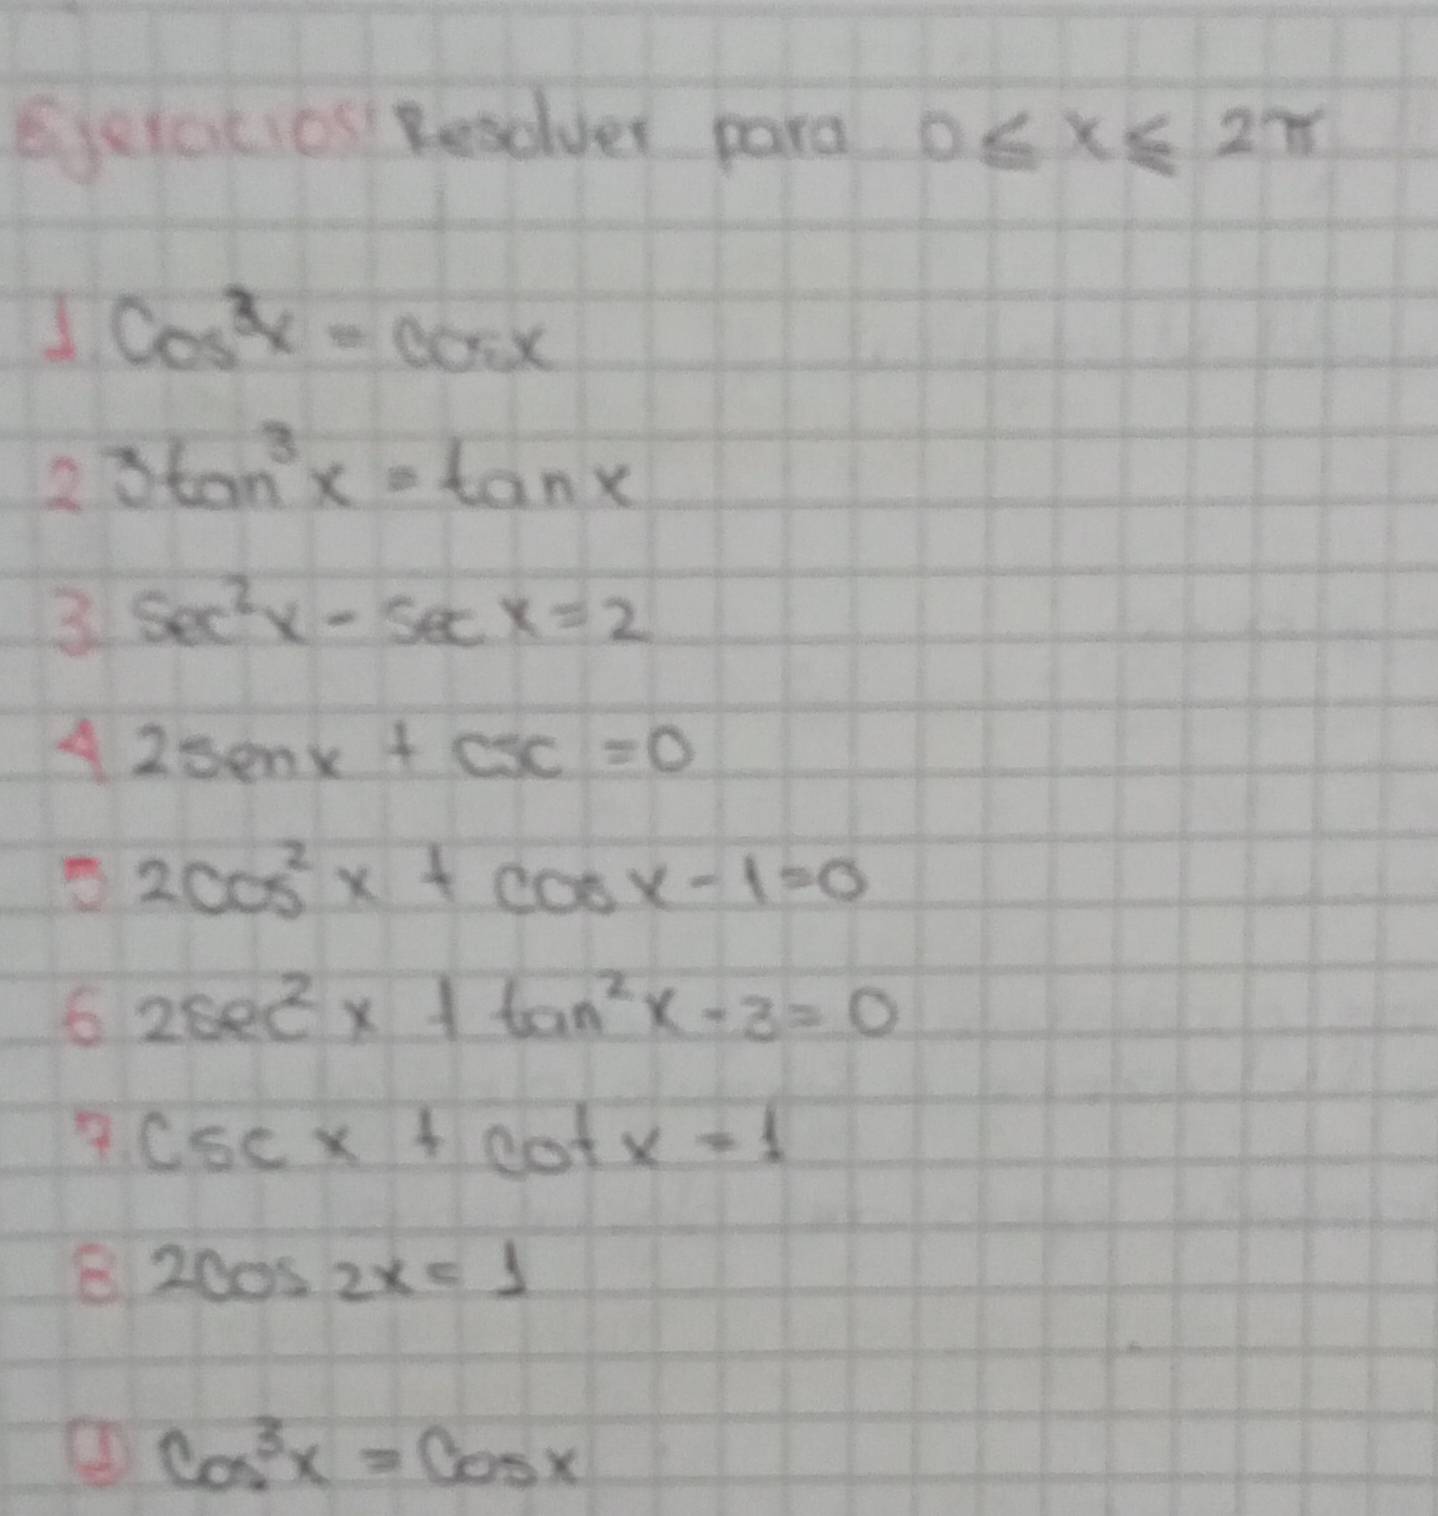 Ejercicios: Resolver para 0 ≤ x ≤ 2π
1. Cos³x = cosx
2 3tan³x = tanx
3. Sec²x - sec x = 2
4 2senx + csc = 0
5 2cos²x + cosx - 1 = 0
6 2sec²x + tan²x - 3 = 0
7. Csc x + cotx = 1
8. 2cos 2x = 1
① Cos³x = Cosx